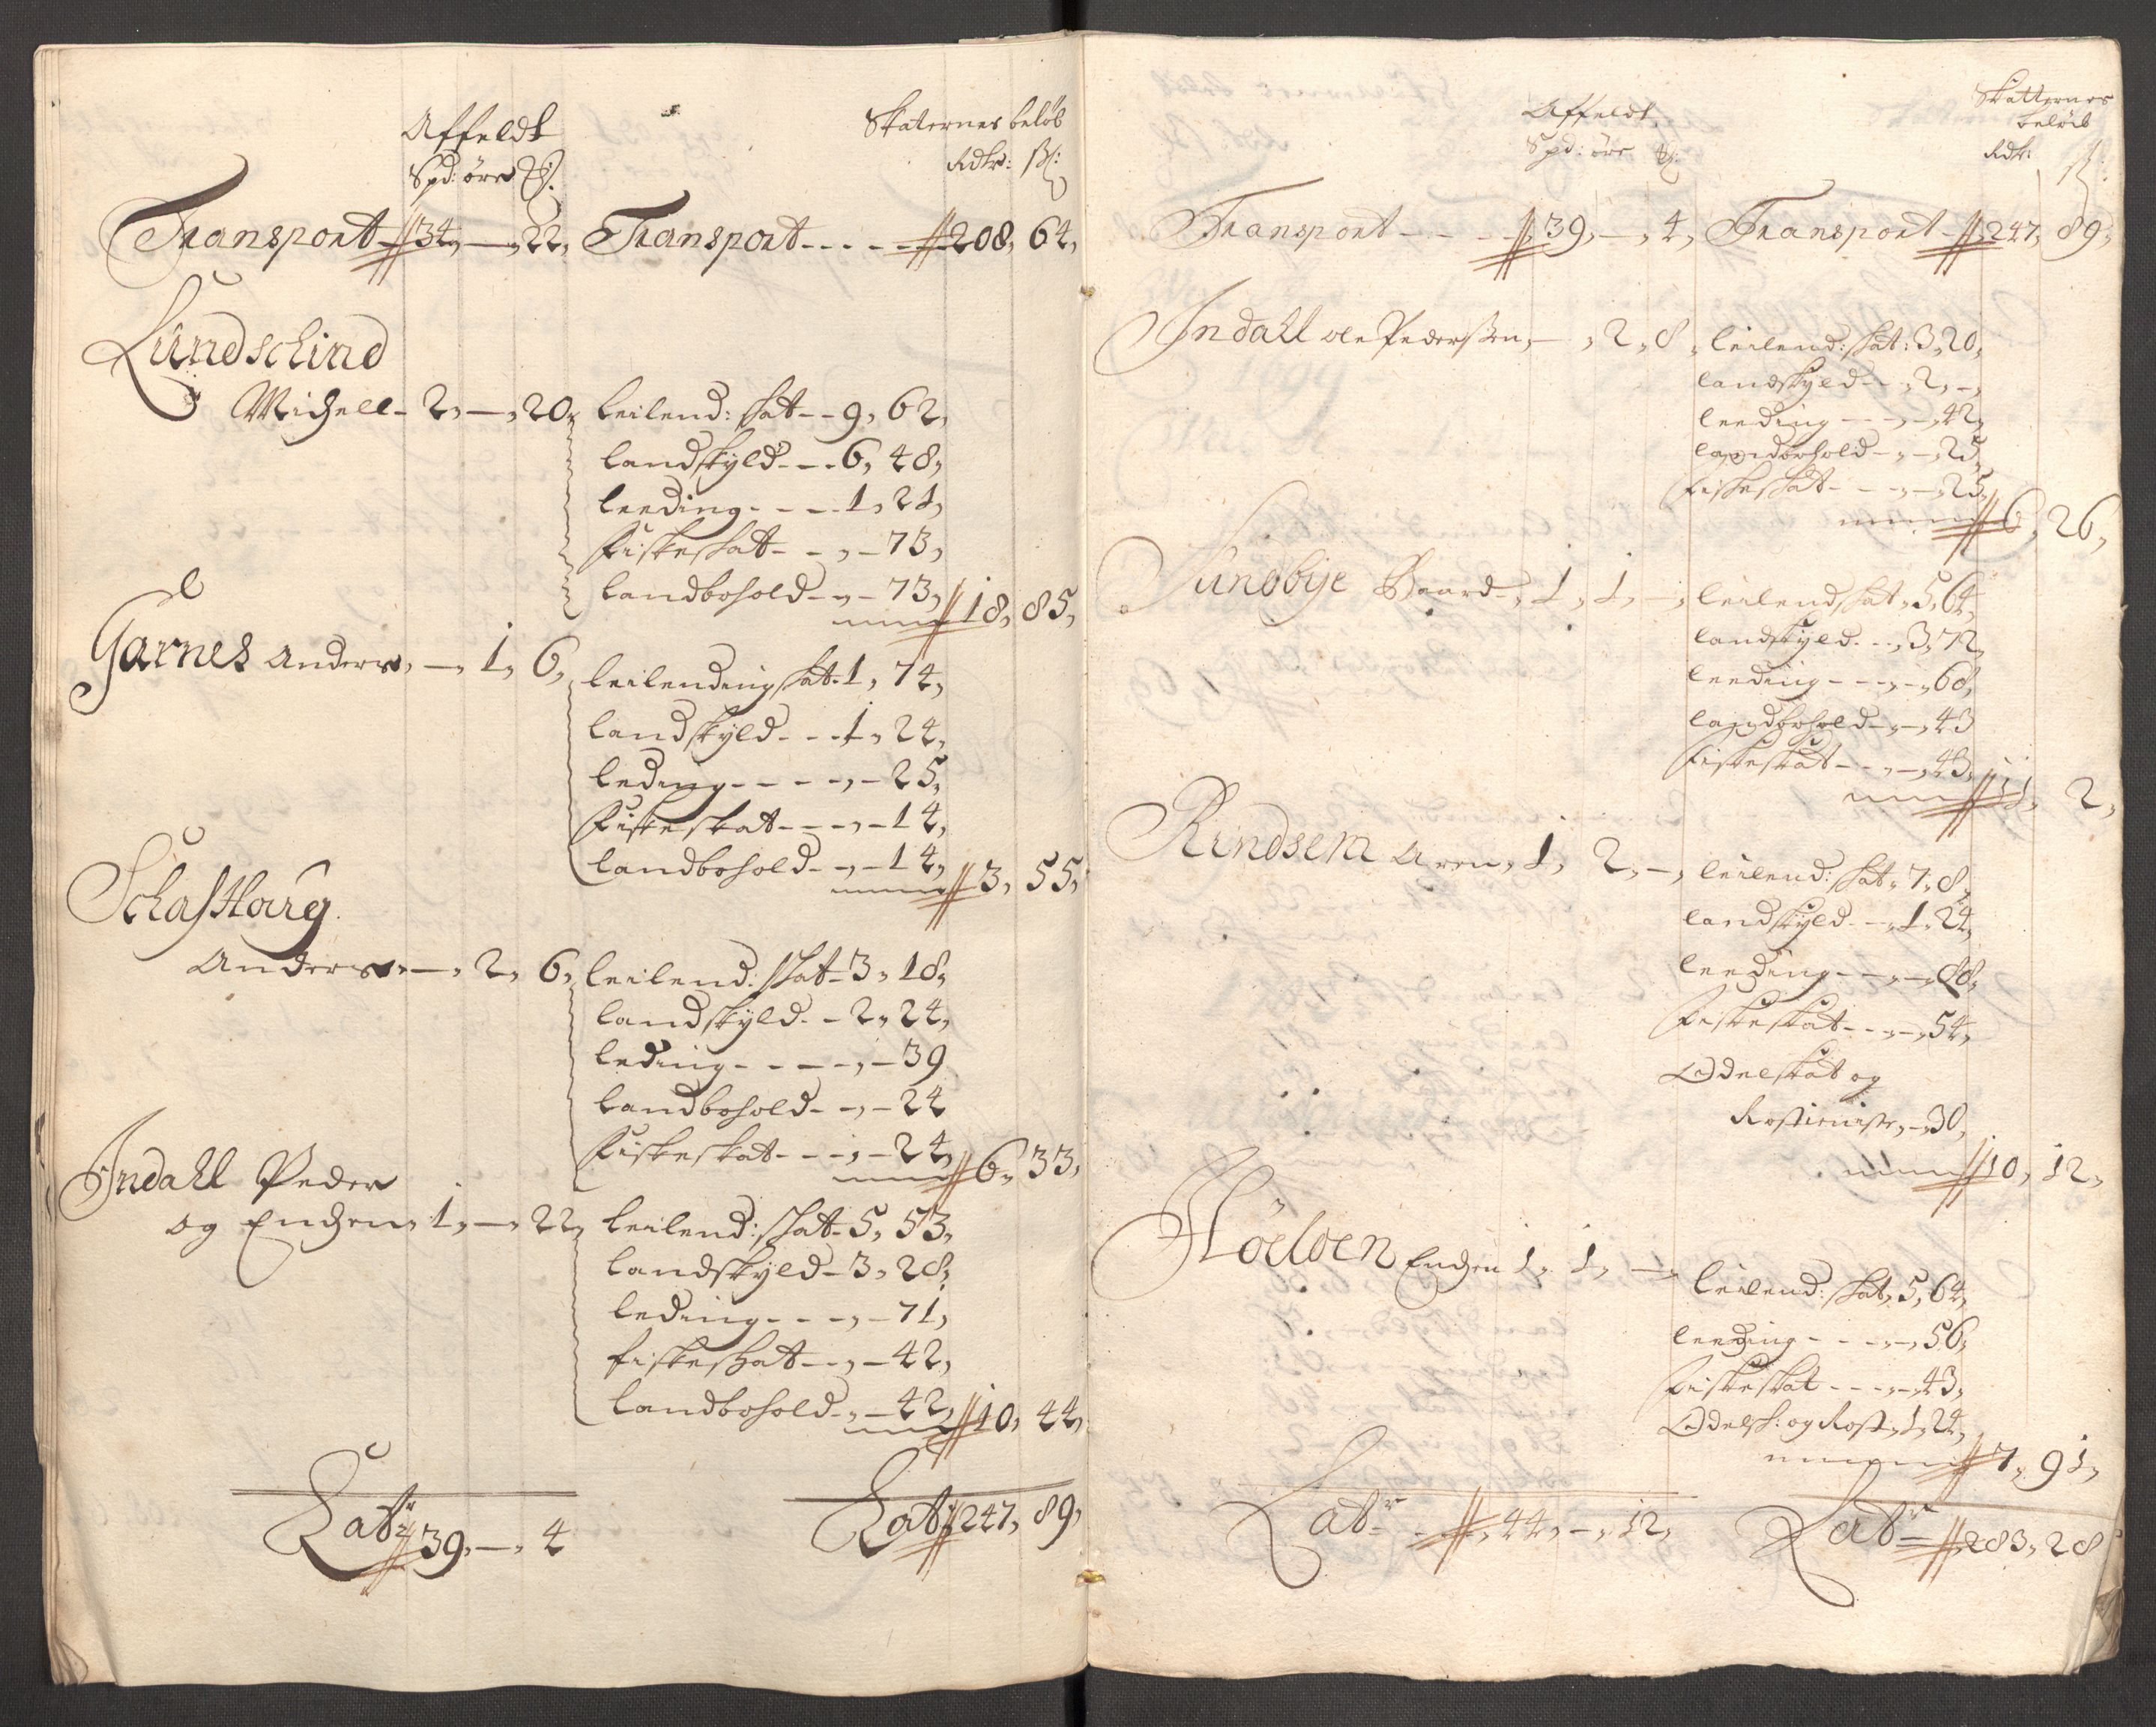 Affeldt
Skaternes beløb
Spd: øre
Rdlr: ß:
Transport 34, — 22, Transport 208, 64,
Lundschind
Michell 2, — 20, leilend: skat 9, 62,
landskyld 6, 48,
leeding 1, 21,
fiskeskat — 73,
landbohold — 73, 18, 85,
Garnes Anders, — 1, 6, leilending skat 1, 74,
landskyld 1, 24,
leding — 25,
fiskeskat — 14,
landbohold — 14, 3, 55,
Anders — 2, 6, leilend: skat 3, 18,
landskyld 2, 24,
leding — 39
landbohold — 24
fiskeskat — 24, 6, 33,
Indahl Peder
og 1, — 22, leilend: skat 5, 53,
landskyld 3, 28,
leding — 71,
fiskeskat — 42,
landbohold — 42, 10, 44,
Lat 39, — 4 Lat 247, 89,
Affeldt
Skatternes
beløb
Spd: øre
Rdlr: ß:
Transport 39, — 4, Transport 247, 89,
Indahl ole Pederssen, — 2, 8, leilend: skat: 3, 20,
landskyld 2, —
leeding — 42,
landbohold — 25,
fiskeskat — 25,
6, 26,
Sundbye Baard 1, 1, — leilend skat, 5, 64,
landskyld 3, 72,
leeding — 68,
landbohold — 43
fiskeskat — 43,
11, 2,
Rindsem Aren, 1, 2, — leilend: skat, 7, 8,
landskyld 1, 24,
leeding — 88,
fiskeskat — 54,
Odelskat og
Rostieniste, — 30,
10, 12,
1, 1, — leilend: skat, 5, 64,
leeding — 56,
fiskeskat — 43,
Odelsk: og Rost, 1, 24,
7, 91,
Lat 44, — 12, Lat 283, 28